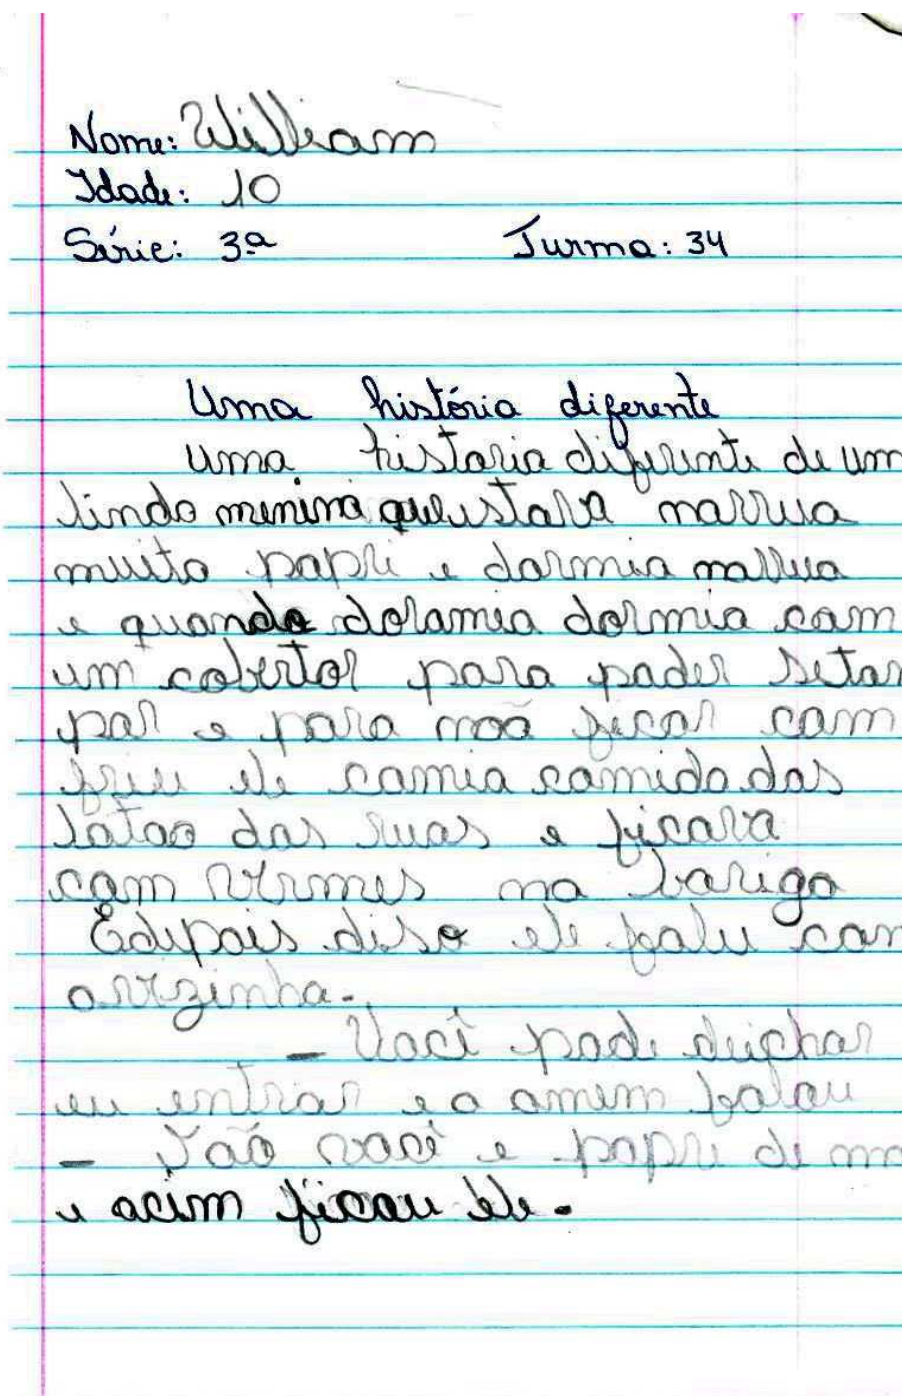 Nome: William
Idade: 10
Série: 3ª Turma: 34
Uma história diferente
uma historia diferente de um
lindo menino que estava narrua
muito papri e dormia narrua
e quando doramia dormia com
um cobertor para poder setar
par e para não ficar com
friu ele comia comida das
latao das ruas e ficava
com vermes na bariga
Edepois diso ele falu com
avizinha.
- Você pode deichar
eu entrar e o omem falou
- Não você e papri de
e acim ficou ele.